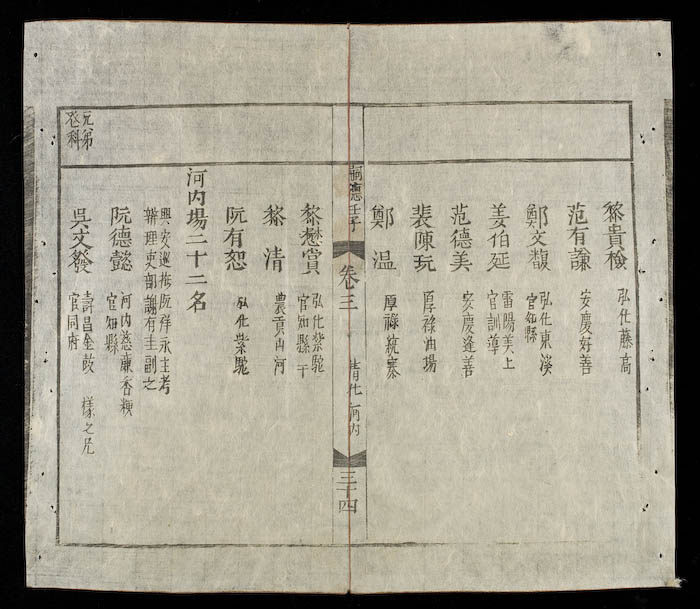 黎貴檢 弘化藤高
范有謙 安慶好善
鄭文馥 弘化東溪
官知縣
姜伯延 雷陽美上
官訓導
范德美 安慶逢善
裴陳玩 厚祿油場
鄭溫 厚祿統寨
嗣德壬子
卷三
清化 河内
三十四
黎懋賞 弘化紫𩣑
官知縣 干
黎清 農貢内河
阮有恕 弘化紫𩣑
河内場二十二名
興安巡撫阮祥永主考
辨理吏部謝有圭副之
阮德懿 河内慈廉香粳
官知縣
兄弟
仝科
吳文發 壽昌金鼓 樣之兄
官同府